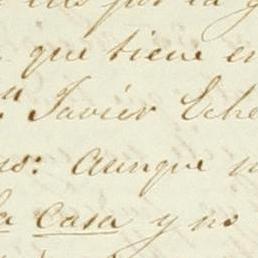 por la
que tiene en
Javier Eche
no: Aunque
la casa y no